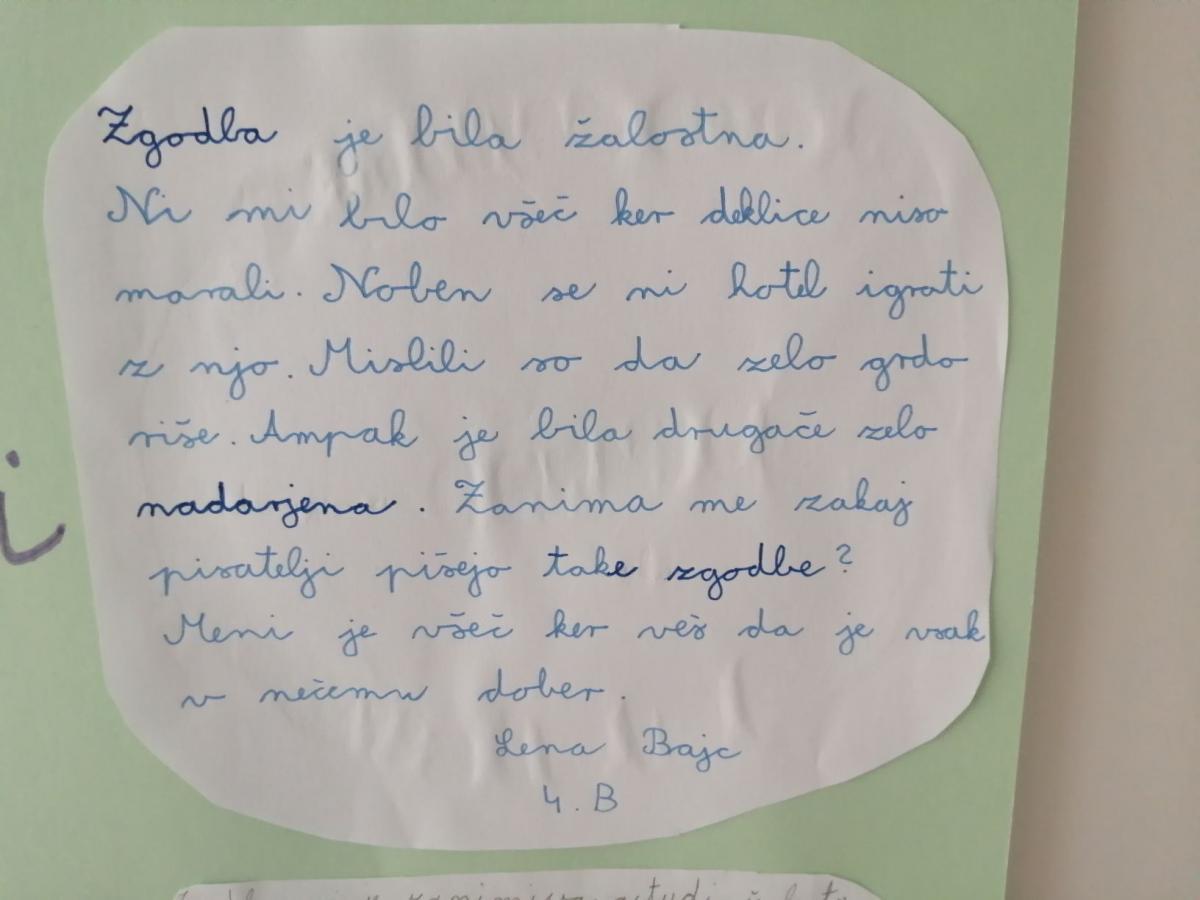 Zgodba je bila žalostna.
Ni mi bilo všeč ker deklice niso
marali. Noben se ni hotel igrati
z njo. Mislili so da zelo grdo
riše. Ampak je bila drugače zelo
nadarjena. Zanima me zakaj
pisatelji pišejo take zgodbe?
Meni je všeč ker veš da je vsak
v nečemu dober.
Lena Bajc
4. B